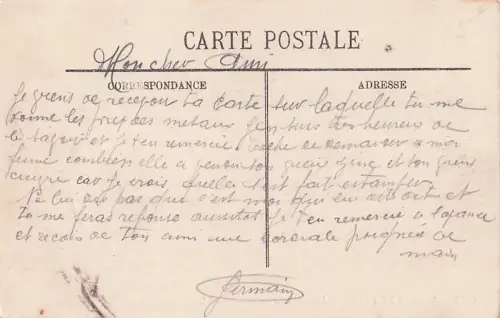 CARTE POSTALE
Mon cher Ami
CORRESPONDANCE
ADRESSE
Je viens de recevoir ta carte sur laquelle tu me
donne les prix des metaux Je suis tres heureux de
le savoir et je t'en remercie Tache de demander a mor
fume combien elle a vendu son zinc et son
cuivre car je crois quelle s'est fait estamper
Ne lui dis pas que c'est moi qui en
Tu me feras reponse aussitot Je t'en remercie a l'avance
et recois de Ton ami une cordiale poignée de
main
Germain